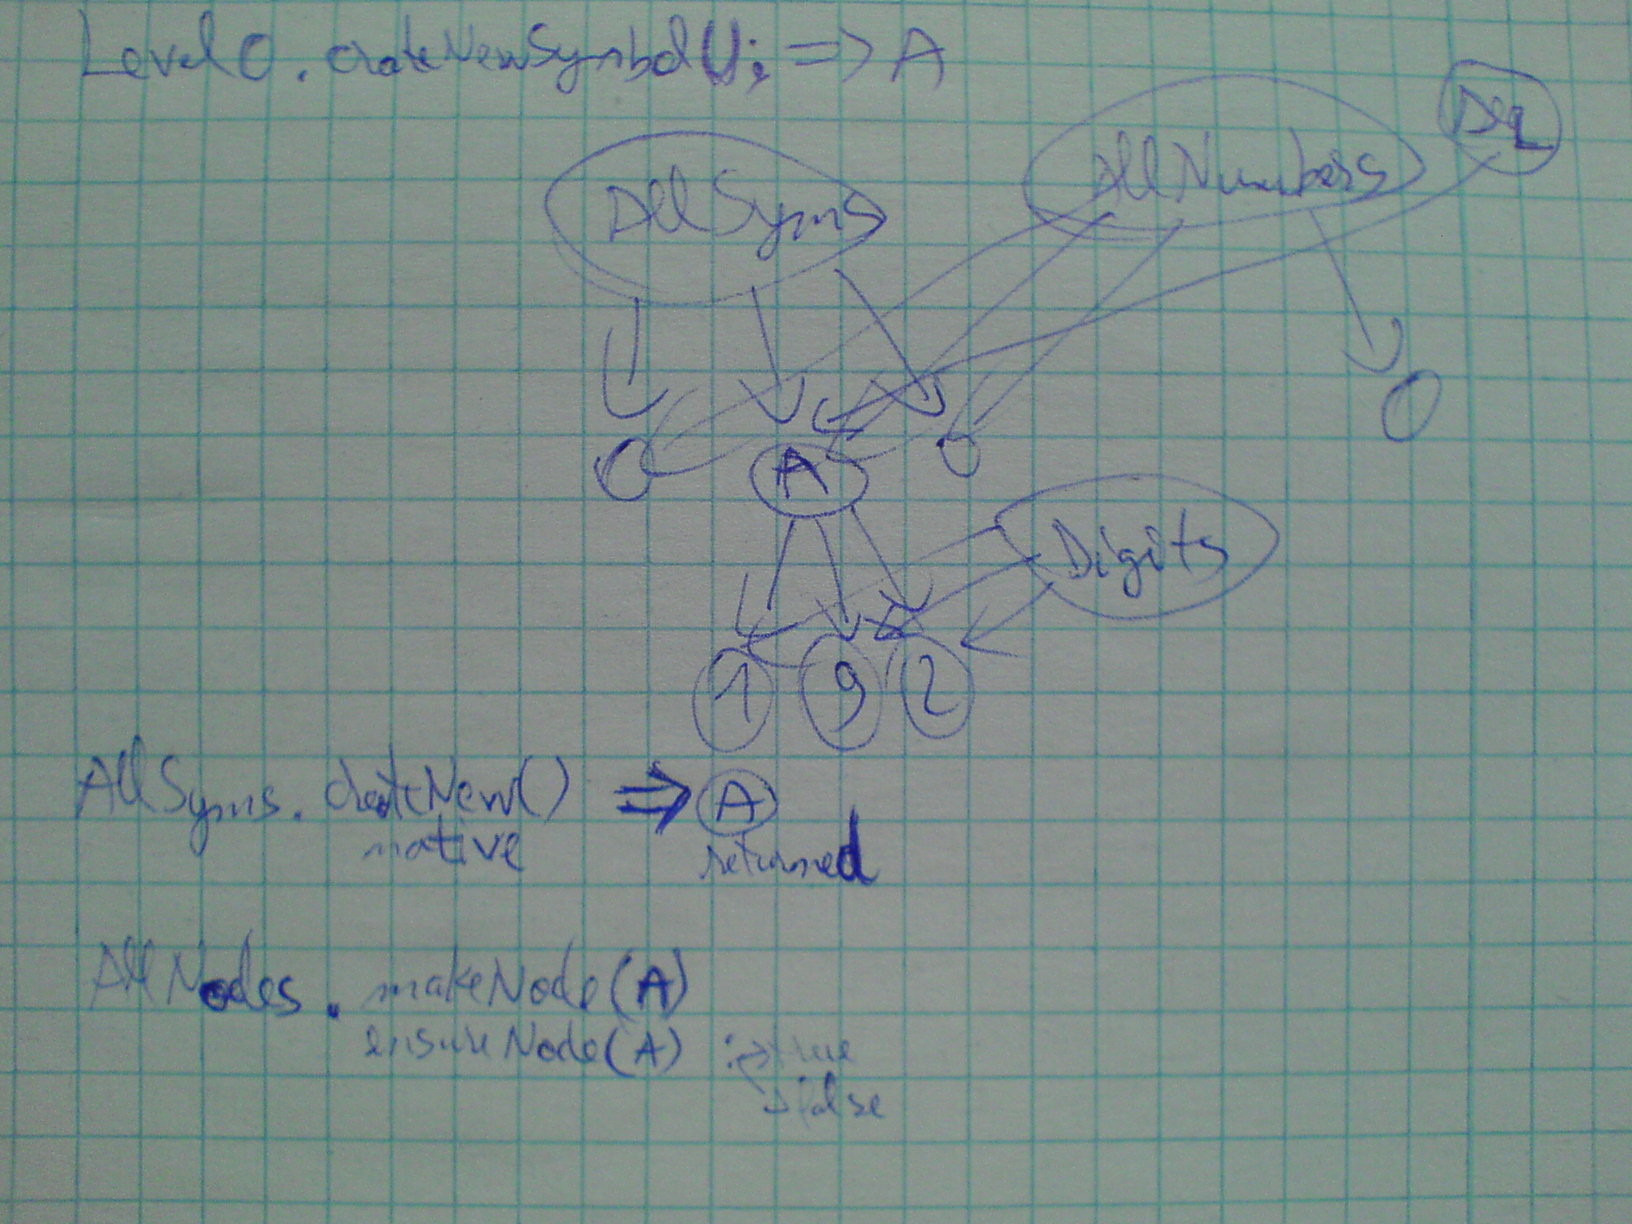 Level0.crateNewSymbol(); => A
AllSyms
AllNumbers
A
Digits
1 9 2
AllSyms.createNew() => A
native returned
AllNodes.makeNode(A)
ensureNode(A) :=> true
-> false